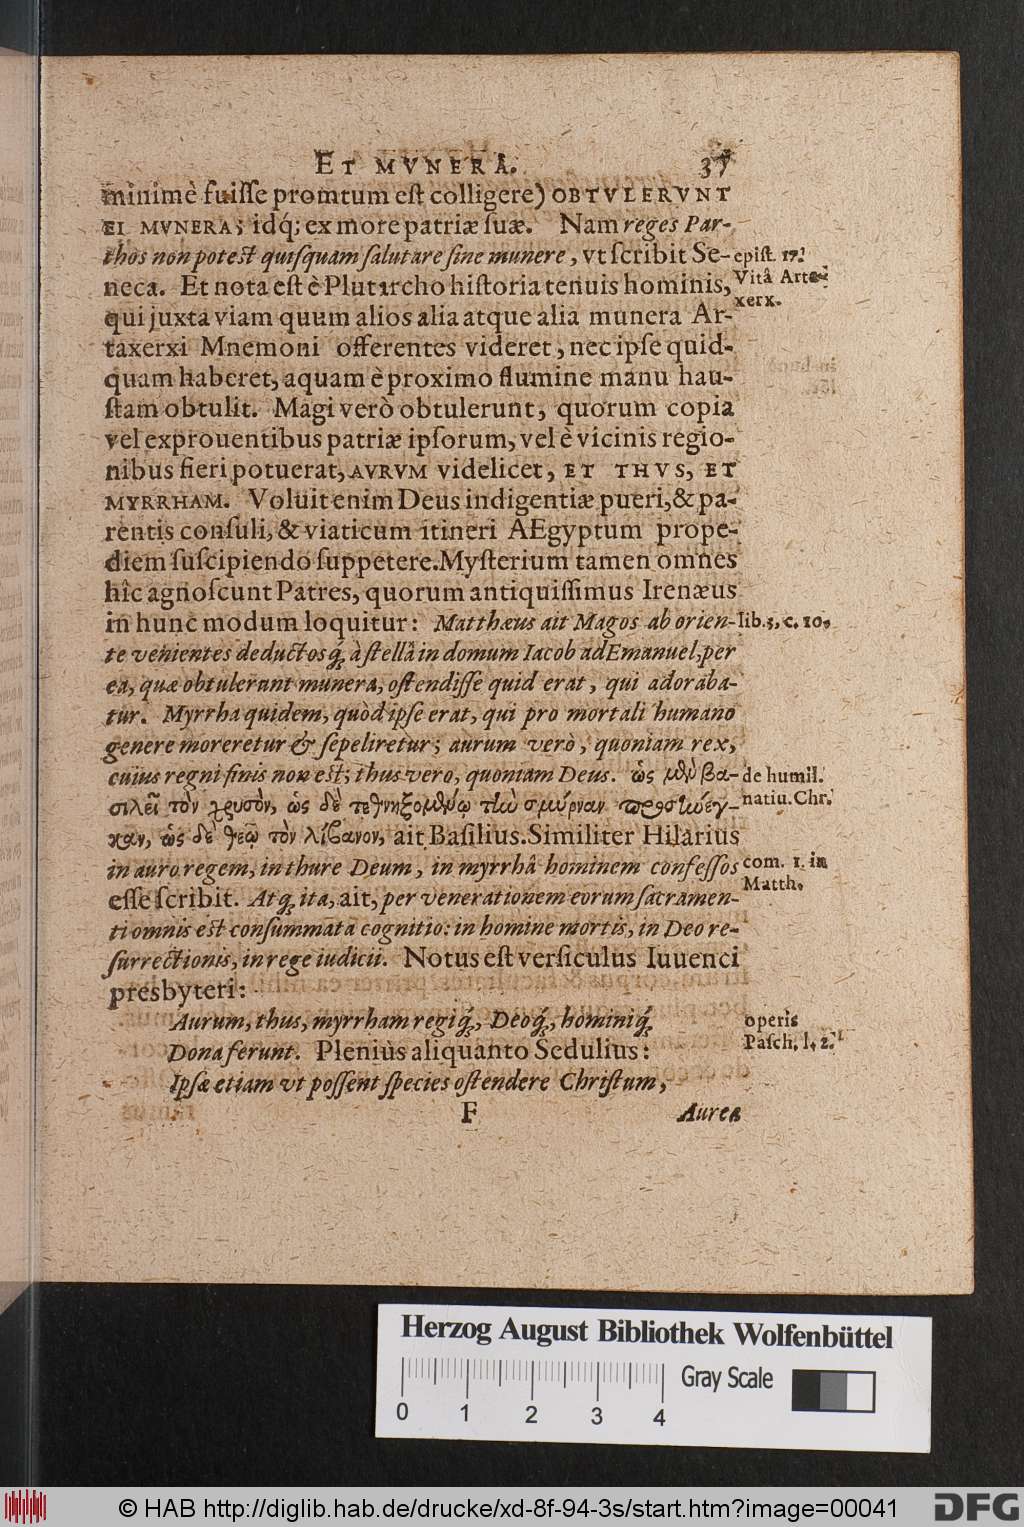 ET MVNERA. 37
minimè fuiſſe promtum eſt colligere) OBTVLERVNT
EI MVNERA; idq́; ex more patriæ ſuæ. Nam reges Par-
thos non poteſt quiſquam ſalutare ſine munere, vt ſcribit Se-
epiſt. 17.
neca. Et nota eſt è Plutarcho hiſtoria tenuis hominis,
Vitâ Arta-
xerx.
qui juxta viam quum alios alia atque alia munera Ar-
taxerxi Mnemoni offerentes videret, nec ipſe quid-
quam haberet, aquam è proximo flumine manu hau-
ſtam obtulit. Magi verò obtulerunt, quorum copia
vel ex prouentibus patriæ ipſorum, vel è vicinis regio-
nibus fieri potuerat, AVRVM videlicet, ET THVS, ET
MYRRHAM. Voluit enim Deus indigentiæ pueri, & pa-
rentis conſuli, & viaticum itineri AEgyptum prope-
diem ſuſcipiendo ſuppetere. Myſterium tamen omnes
hîc agnoſcunt Patres, quorum antiquiſſimus Irenæus
in hunc modum loquitur: Matthæus ait Magos ab orien-
lib. 3. c. 10.
te venientes deductosq́; à ſtellâ in domum Iacob ad Emanuel, per
ea, quæ obtulerunt munera, oſtendiſſe quid erat, qui adoraba-
tur. Myrrha quidem, quòd ipſe erat, qui pro mortali humano
genere moreretur & ſepeliretur; aurum verò, quoniam rex,
cuius regni finis non eſt; thus vero, quoniam Deus. ὡς μὲν βα-
de humil.
natiu. Chr.
σιλεῖ τὸν χρυσὸν, ὡς δὲ τεθνηξομένῳ τὼ σμύρναν προσήνεγ-
καν, ὡς δὲ θεῷ τὸν λίβανον, ait Baſilius. Similiter Hilarius
in auro regem, in thure Deum, in myrrhâ hominem confeſſos
com. 1. in
Matth.
eſſe ſcribit. Atq́; ita, ait, per venerationem eorum ſacramen-
ti omnis eſt conſummata cognitio: in homine mortis, in Deo re-
ſurrectionis, in rege iudicii. Notus eſt verſiculus Iuuenci
presbyteri:
Aurum, thus, myrrham regiq́;, Deoq́;, hominiq́;
Dona ferunt. Pleniùs aliquanto Sedulius:
operis
Paſch. l. 2.
Ipſæ etiam vt poſſent ſpecies oſtendere Chriſtum,
F Aurea
Herzog August Bibliothek Wolfenbüttel
Gray Scale
0 1 2 3 4
© HAB http://diglib.hab.de/drucke/xd-8f-94-3s/start.htm?image=00041
DFG